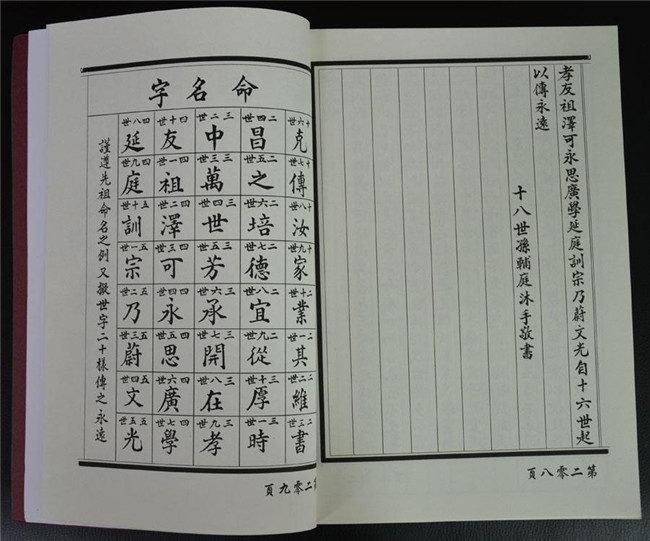 孝友祖澤可永思廣學延庭訓宗乃蔚文光自十六世起
以傳永遠
十八世孫輔庭沐手敬書
第二零八頁
命名字
十六世
克
十七世
傳
十八世
汝
十九世
家
二十世
業
二一世
其
二二世
維
二三世
書
二四世
昌
二五世
之
二六世
培
二七世
德
二八世
宜
二九世
從
三十世
厚
三一世
時
三二世
中
三三世
萬
三四世
世
三五世
芳
三六世
承
三七世
開
三八世
在
三九世
孝
四十世
友
四一世
祖
四二世
澤
四三世
可
四四世
永
四五世
思
四六世
廣
四七世
學
四八世
延
四九世
庭
五十世
訓
五一世
宗
五二世
乃
五三世
蔚
五四世
文
五五世
光
謹遵先祖命名之例又擬世字二十樣傳之永遠
第二零九頁